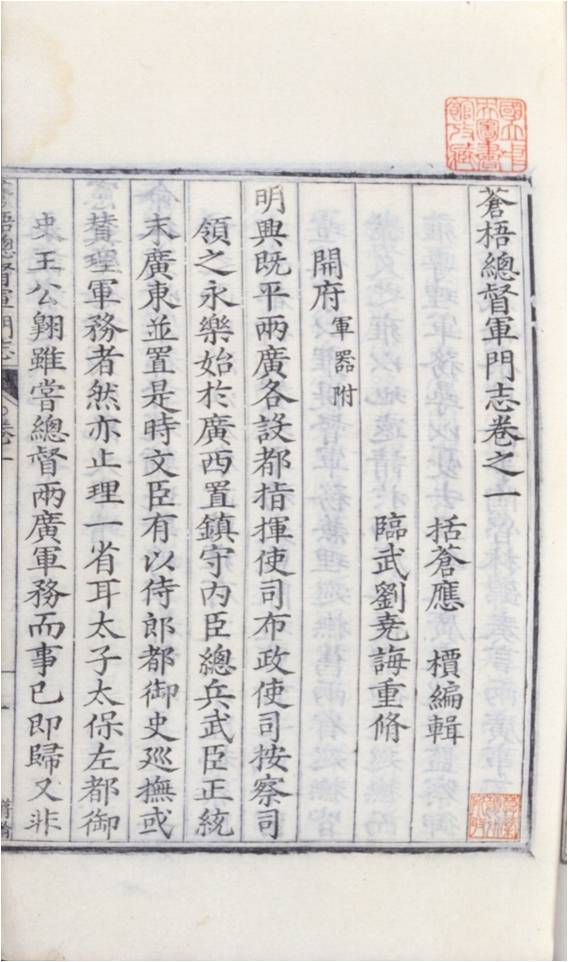 國立中
央圖書
館收藏
蒼梧總督軍門志卷之一
括蒼應 檟編輯
臨武劉堯誨重脩
開府 軍器附
明興既平兩廣各設都指揮使司布政使司按察司
領之永樂始於廣西置鎮守內臣總兵武臣正統
末廣東並置是時文臣有以侍郎都御史廵撫或
賛理軍務者然亦止理一省耳太子太保左都御
史王公翺雖嘗總督兩廣軍務而事已即歸又非
蒼梧總督軍門志 卷一